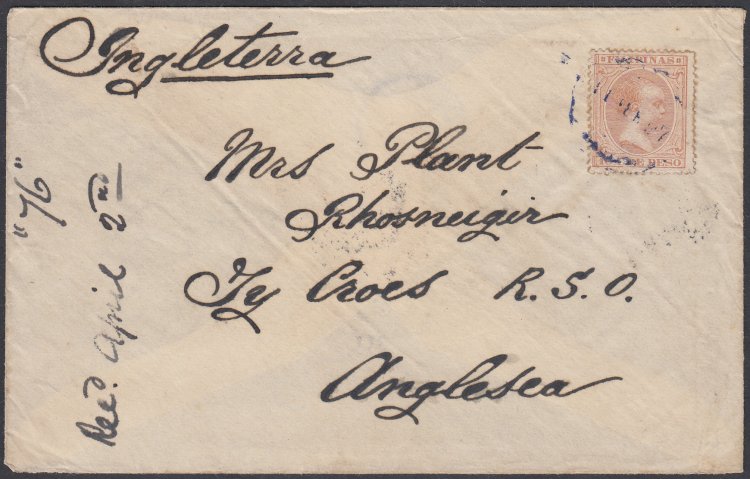 Ingleterra
FILIPINAS
PESO
Mrs Plant
Rhosneigir
Ty Croes R.S.O.
Anglesea
"76"
Rec.d April 2nd